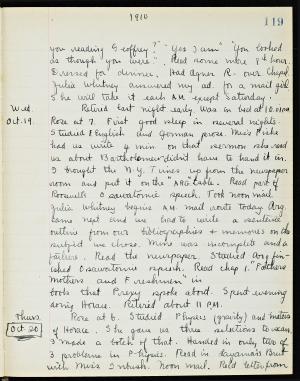 1910
119
you reading Geoffrey?" "Yes I am" "You looked
as though you were". Read some more 8th hour.
Dressed for dinner. Had Agnes R. over Chapel
Julia Whitney answered my ad. for a mail girl
She will take it each A.M. except Saturday.
Wed. Retired last night early. Was in bed at 10.
Oct. 19. Rose at 7. First good sleep in several nights.
Studied English and German prose. Miss Fiske
had us write 4 min on that sermon she read
us about Bartholomew didn't have to hand it in.
I brought the N.Y. Times up from the newspaper
room and put it on the table. Read part of
Roosevelt's Osawatomie speech. Took noon mail.
Julia Whitney begins a mail route today. Arg.
came next and we had to write a sentence
outline from our bibliographies & memories on the
subject we chose. Mine was incomplete and a
failure. Read the newspaper. Studied Arg. fin-
ished Osawatomie speech. Read chap 1. "Fathers
Mothers and Freshmen" in
book that Prexy spoke about. Spent evening
doing Horace. Retired about 11 P.M.
Thurs. Rose at 6. Studied Physics (gravity) and metres
Oct. 20 of Horace. She gave us three selections to scan
I made a botch of that. Handed in only two of
3 problems in Physics. Read in
with Miss. Noon mail. Had letter from